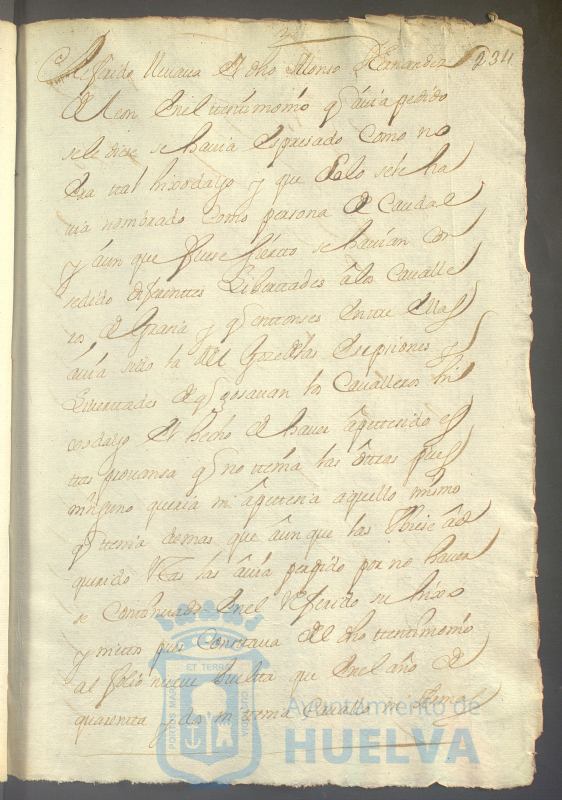 234
el dho Alonso Hernandez
de Leon en el testimonio q avia pedido
se le diese se havia espresado como no
era tal hixodalgo y que solo se le ha
via nombrado como persona de Caudal
y aun que fuese sierto se havian con
sedido diferentes Libertades a los Cavalle
ros de Grasia y q entonses entre ellas
avia sido la del Goze de las esepsiones y
Libertades de q gosavan los Cavalleros hi
xosdalgo el hecho de haver apetesido es
tas provansa q no tenia las otras pues
ninguno queria ni apetesia aquello mismo
q tenia demas que aun que las hubiese ad
querido las avia perdido por no haver
se Continuado en el Referido su hixo
y nietos pues Constava del dho testimonio
al folio nueve buelta que en el año de
quarenta y dos ni tenia Cavallo ni Armas
PORTUS MARIS
ET TERRAE
CUSTODIA
Ayuntamiento de
HUELVA